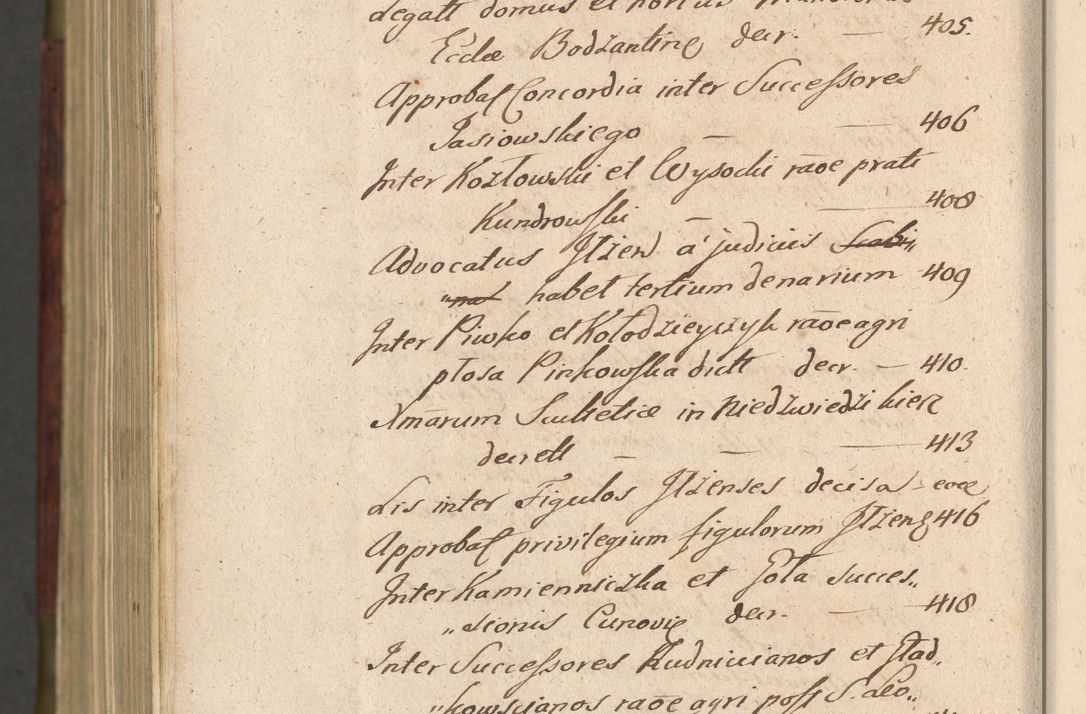 legatt domus et hortus
Eccłae Bodzantine decr. — 405.
Approbat Concordia inter Successores
Jasiowskiego — — 406
Inter Kozłowski et Wysocki rāōe prati
Kundrowski — 408
Advocatus Iłżen a judiciis
habet tertium denarium 409
Inter Piwko et Kołodzieyczyk rāōe agri
płosa Pinkowska dictt decr. — 410.
Xmārum Scultetiae in Niedzwiedzi kierz
decrett — — — 413
Lis inter Figulos Iłżenses decisa
Approbat privilegium figulorum Iłżens 416
Inter Kamienniczka et Gola succes„
„sionis Cunovię decr. — 418
Inter Successores Rudnicianos et Stad„
„kowscianos rāōe agri post S. Leo„